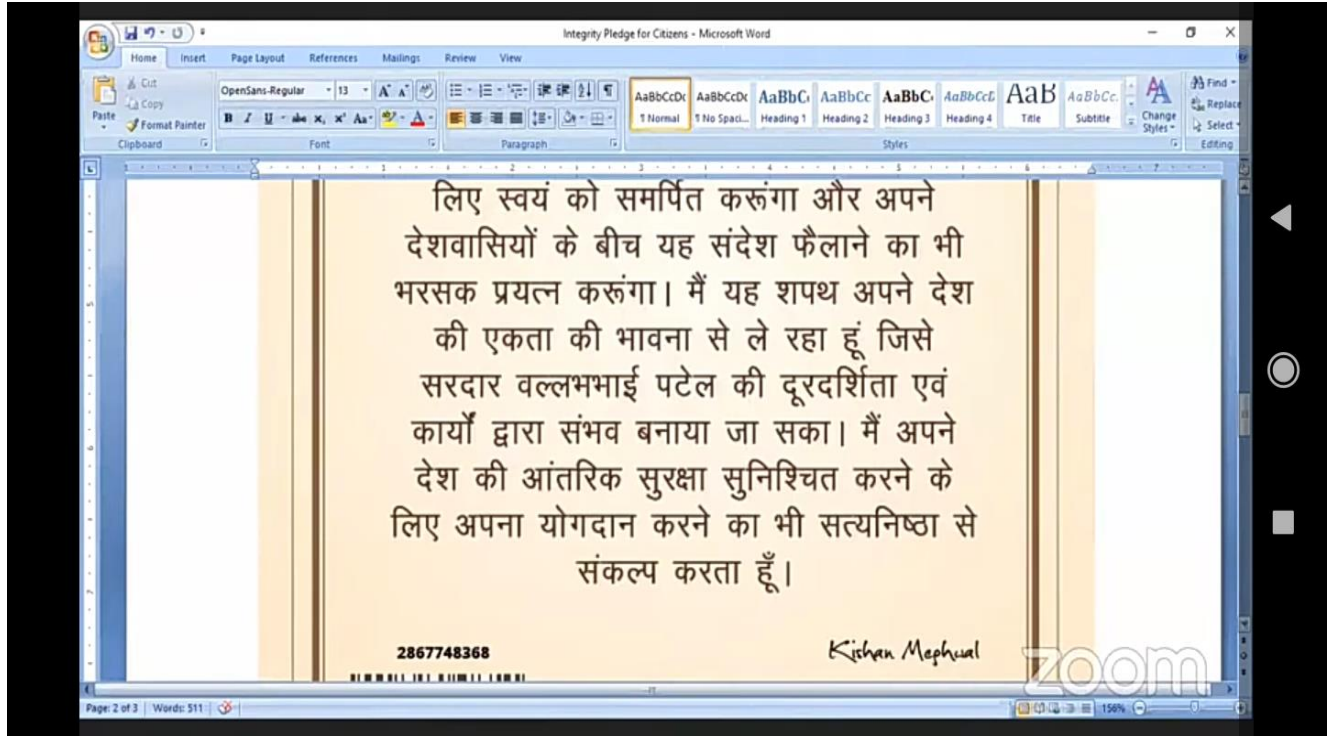 Integrity Pledge for Citizens - Microsoft Word
Home Insert Page Layout References Mailings Review View
Paste
Cut
Copy
Format Painter
Clipboard
OpenSans-Regular 13
Font
Paragraph
AaBbCcDc AaBbCcDc AaBbC AaBbCc AaBbC AaBbCcL AaB AaBbCc.
¶ Normal ¶ No Spaci... Heading 1 Heading 2 Heading 3 Heading 4 Title Subtitle
Change Styles
Styles
Find
Replace
Select
Editing
लिए स्वयं को समर्पित करूंगा और अपने
देशवासियों के बीच यह संदेश फैलाने का भी
भरसक प्रयत्न करूंगा। मैं यह शपथ अपने देश
की एकता की भावना से ले रहा हूं जिसे
सरदार वल्लभभाई पटेल की दूरदर्शिता एवं
कार्यों द्वारा संभव बनाया जा सका। मैं अपने
देश की आंतरिक सुरक्षा सुनिश्चित करने के
लिए अपना योगदान करने का भी सत्यनिष्ठा से
संकल्प करता हूँ।
2867748368
Kishan Meghwal
zoom
Page: 2 of 3 Words: 511 156%